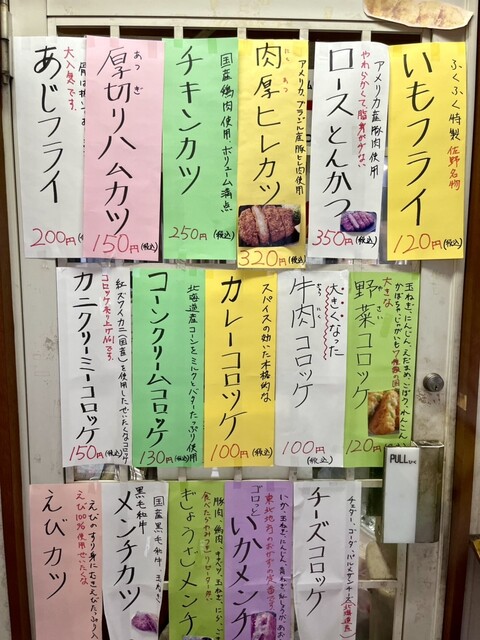 ふくふく特製 佐野名物
いもフライ
120円(税込)
アメリカ産豚肉使用
やわらかくて、脂身が少ない
ロースとんかつ
350円(税込)
アメリカ、ブラジル産豚ヒレ肉使用
にく あつ
肉厚ヒレカツ
320円(税込)
国産鶏肉使用、ボリューム満点
チキンカツ
250円(税込)
あつ ぎ
厚切りハムカツ
150円(税込)
大人気です。
あじフライ
200円
玉ねぎ、にんじん、えだまめ、ごぼう、れんこん
かぼちゃ、じゃがいも、7種類の国
大きな
やさい
野菜コロッケ
120円
大きくなった
牛肉コロッケ
100円
(税込)
スパイスの効いた本格的な
カレーコロッケ
100円(税込)
北海道産コーンとミルクとバターたっぷり使用
コーンクリームコロッケ
130円(税込)
紅ズワイカニ(国産)を使用したぜいたくなコロッケ
コロッケ売り上げNo.1です。
カニクリーミーコロッケ
150円(税込)
PULL
チェダー、ゴーダ、パルメザンチーズ(北海道産)
チーズコロッケ
いか、玉ねぎ、にんじん、
東北地方のおかずの定番です
ゴロッと
いかメンチ
豚肉、鶏肉、キャベツ、玉ねぎ、にら、
ぎょうざメンチ
国産黒毛和牛、玉ねぎ
黒毛和牛
メンチカツ
えびのすり身にむきえびたっぷり入
えび100%使用ぜいたくな
えびカツ